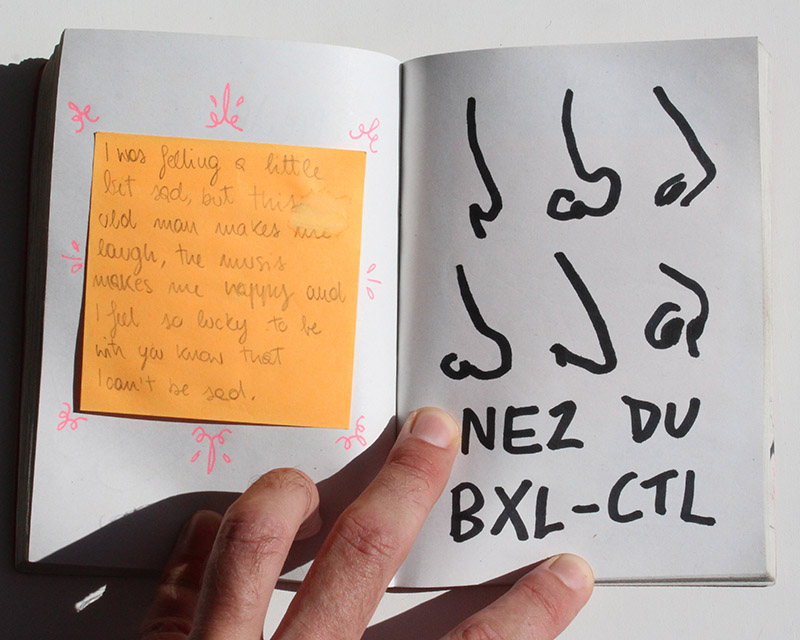 I was felling a little
bit sad, but this
old man makes me
laugh, the musis
makes me happy and
I feel so lucky to be
with you know that
I can't be sad.
NEZ DU
BXL-CTL